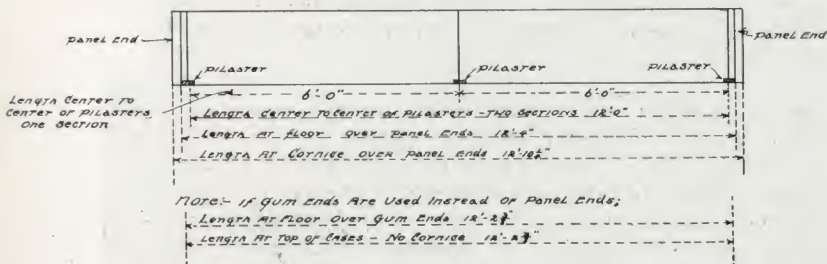 Panel End
Panel End
Pilaster
Pilaster
Pilaster
6'-0"
6'-0"
Length Center to
Center of Pilasters
One Section
Length Center to Center of Pilasters - Two Sections 12'-0"
Length at floor over Panel Ends 12'-4"
Length at Cornice over Panel Ends 12'-10½"
Note:- If Gum Ends Are Used Instead of Panel Ends;
Length at Floor over Gum Ends 12'-2¾"
Length at Top of Cases - No Cornice 12'-2¾"